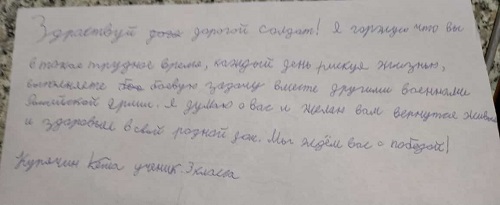 Здраствуй доро дорогой солдат! Я горжусь что вы
в такое трудное время, каждый день рискуя жизнью,
выполняете бое боевую задачу вместе другими военными
Российской Армии. Я думаю о вас и желаю вам вернутся живым
и здоровым в свой родной дом. Мы ждём вас с победой!
ученик 3 класса